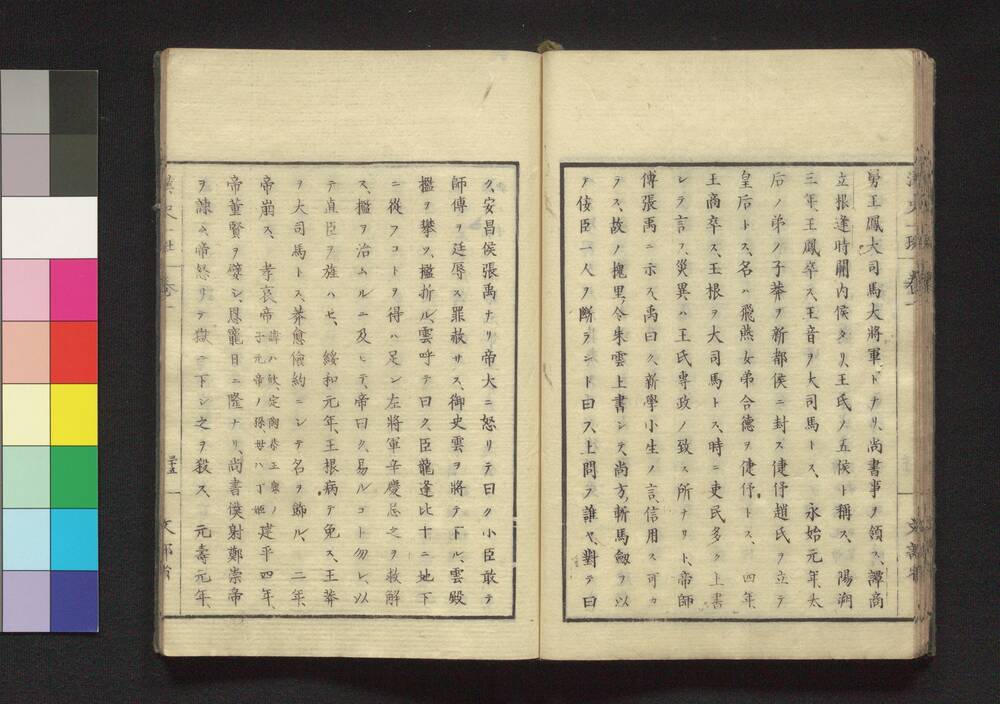 舅王鳳大司馬大將軍トナリ、尚書事ヲ領ス、譚商
立根逢時關内侯タリ、王氏ノ五侯ト稱ス、陽朔
三年、王鳳卒ス、王音ヲ大司馬トス、永始元年、太
后ノ弟ノ子莽ヲ新都侯ニ封ス倢伃趙氏ヲ立テ
皇后トス、名ハ飛燕女弟合德ヲ倢伃トス、四年、
王商卒ス、王根ヲ大司馬トス、時ニ吏民多ク上書
シテ言フ、災異ハ王氏専政ノ致ス所ナリト、帝師
傅張禹ニ示ス、禹曰ク、新學小生ノ言、信用ス可カ
ラス、故ノ槐里令朱雲上書シテ、尚方斬馬劔ヲ以
テ佞臣一人ヲ斷ラント曰フ、上問フ誰ヤ、對テ曰
ク、安昌侯張禹ナリ帝大ニ怒リテ曰ク小臣敢テ
師傅ヲ廷辱ス罪赦サス、御史雲ヲ將テ下ル、雲殿
檻ヲ攀ツ、檻折ル、雲呼テ曰ク、臣龍逢比干ニ地下
ニ從フコトヲ得ハ足ン左將軍辛慶忌之ヲ救解
ス、檻ヲ治ムルニ及ヒテ、帝曰ク、易ルコト勿レ、以
テ直臣ヲ旌ハセ、綏和元年、王根病テ免ス、王莽
ヲ大司馬トス、莽愈儉約ニシテ名ヲ飾ル、二年、
帝崩ス、孝哀帝諱ハ欣、定陶恭王康ノ子元帝ノ孫、母ハ丁姬建平四年、
帝董賢ヲ嬖シ、恩寵日ニ隆ナリ、尚書僕射鄭崇帝
ヲ諫ム、帝怒リテ獄ニ下シ之ヲ殺ス、元壽元年、
二十五
文部省